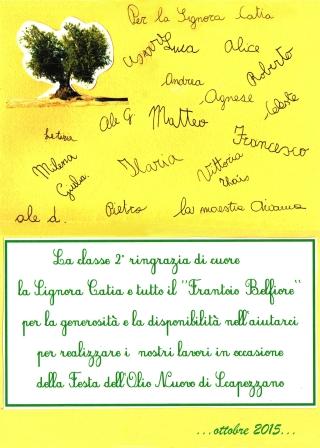 Per la Signora Catia
Luca
Alice
Roberto
Andrea
Agnese
Celeste
Ale G.
Matteo
Francesco
Letizia
Milena
Giulia
Ilaria
Vittoria
Thais
ale d.
Pietro
la maestra
La classe 2ª ringrazia di cuore
la Signora Catia e tutto il "Frantoio Belfiore"
per la generosità e la disponibilità nell'aiutarci
per realizzare i nostri lavori in occasione
della Festa dell'Olio Nuovo di Scapezzano
...ottobre 2015...